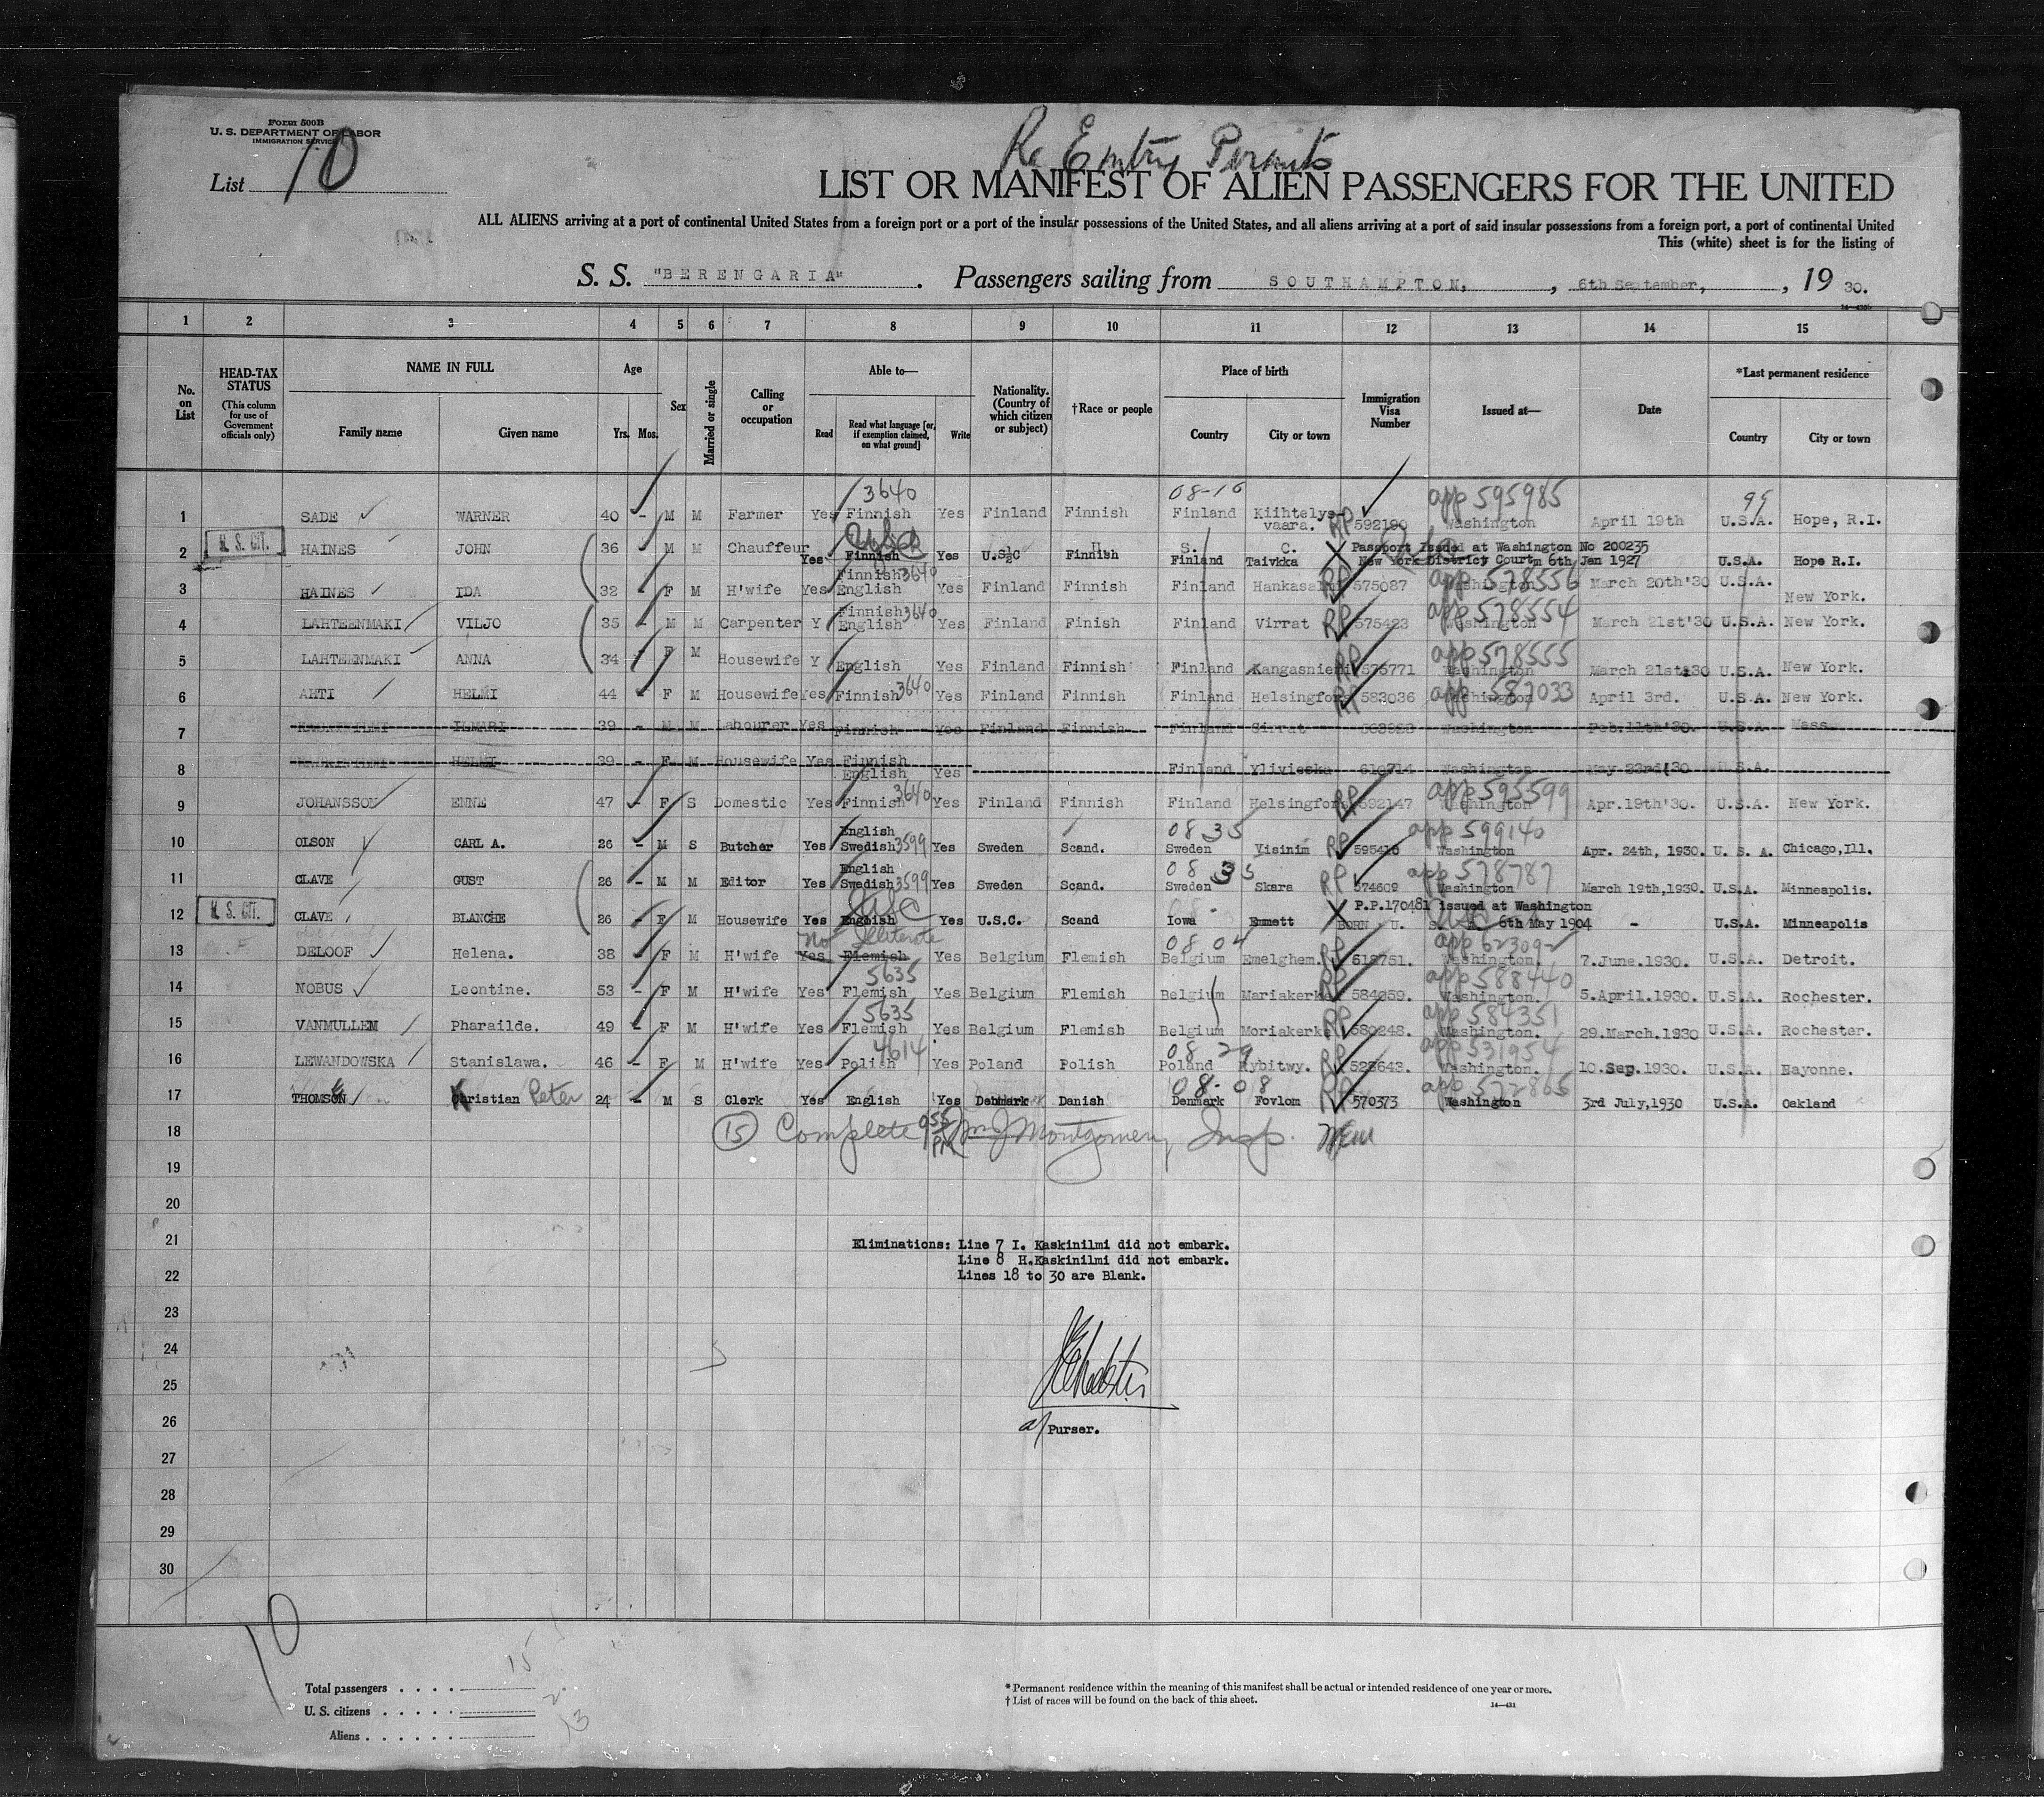 Form 500B
U. S. DEPARTMENT OF LABOR
IMMIGRATION SERVICE
List 10
Re Entry Permits
LIST OR MANIFEST OF ALIEN PASSENGERS FOR THE UNITED
ALL ALIENS arriving at a port of continental United States from a foreign port or a port of the insular possessions of the United States, and all aliens arriving at a port of said insular possessions from a foreign port, a port of continental United
This (white) sheet is for the listing of
S. S. "BERENGARIA". Passengers sailing from SOUTHAMPTON, , 6th September, , 19 30.
1 2 3 4 5 6 7 8 9 10 11 12 13 14 15
No. on List
HEAD-TAX STATUS (This column for use of Government officials only)
NAME IN FULL Family name Given name
Age Yrs. Mos.
Sex
Married or single
Calling or occupation
Able to— Read Read what language [or, if exemption claimed, on what ground] Write
Nationality. (Country of which citizen or subject)
†Race or people
Place of birth Country City or town
Immigration Visa Number
Issued at—
Date
*Last permanent residence Country City or town
3640 08-16 app 595985 99
1 SADE WARNER 40 - M M Farmer Yes Finnish Yes Finland Finnish Finland Kiihtelys-vaara. RP 592190 Washington April 19th U.S.A. Hope, R.I.
U. S. CIT.
2 HAINES JOHN 36 M M Chauffeur Yes Finnish Yes U.S.C Finnish Finland Taivkka Passport Issued at Washington No 200235 New York District Court 6th Jan 1927 U.S.A. Hope R.I.
3 HAINES IDA 32 - F M H'wife Yes Finnish 3640 English Yes Finland Finnish Finland Hankasalmi RP 575087 app 578556 Washington March 20th'30 U.S.A. New York.
4 LAHTEENMAKI VILJO 35 - M M Carpenter Y Finnish 3640 English Yes Finland Finish Finland Virrat RP 575423 app 578554 Washington March 21st'30 U.S.A. New York.
5 LAHTEENMAKI ANNA 34 - F M Housewife Y English Yes Finland Finnish Finland Kangasniemi RP 575771 app 578555 Washington March 21st'30 U.S.A. New York.
6 AHTI HELMI 44 - F M Housewife Yes Finnish 3640 Yes Finland Finnish Finland Helsingfors RP 583036 app 587033 Washington April 3rd. U.S.A. New York.
7 ILMARI 39 - M M Labourer Yes Finnish Yes Finland Finnish Finland Washington Feb.11th'30. U.S.A. Mass
8 HELMI 39 - F M Housewife Yes Finnish English Yes Finland Ylivieska 610714 Washington May 23rd'30 U.S.A.
9 JOHANSSON ENNE 47 - F S Domestic Yes Finnish 3640 Yes Finland Finnish Finland Helsingfors RP 592147 app 595599 Washington Apr.19th'30. U.S.A. New York.
10 OLSON CARL A. 26 - M S Butcher Yes English Swedish 3599 Yes Sweden Scand. 08 35 Sweden Visinim RP 595416 app 599140 Washington Apr. 24th, 1930. U. S. A. Chicago, Ill.
11 CLAVE GUST 26 - M M Editor Yes English Swedish 3599 Yes Sweden Scand. 08 35 Sweden Skara RP 574609 app 578787 Washington March 19th,1930. U.S.A. Minneapolis.
U. S. CIT.
12 CLAVE BLANCHE 26 - F M Housewife Yes English USC Yes U.S.C. Scand Iowa Emmett P.P.170481 issued at Washington BORN U. S. A. 6th May 1904 - U.S.A. Minneapolis
13 DELOOF Helena. 38 - F M H'wife Yes No Flemish Illiterate Yes Belgium Flemish 08 04 Belgium Emelghem. RP 618751. app 623092 Washington. 7.June.1930. U.S.A. Detroit.
14 NOBUS Leontine. 53 - F M H'wife Yes 5635 Flemish Yes Belgium Flemish Belgium Mariakerke RP 584059. app 588440 Washington. 5.April.1930. U.S.A. Rochester.
15 VANMULLEM Pharailde. 49 - F M H'wife Yes 5635 Flemish Yes Belgium Flemish Belgium Moriakerke RP 580248. app 584351 Washington. 29.March.1930 U.S.A. Rochester.
16 LEWANDOWSKA Stanislawa. 46 - F M H'wife Yes 4614 Polish Yes Poland Polish 08 29 Poland Rybitwy. RP 528643. app 531954 Washington. 10.Sep.1930. U.S.A. Bayonne.
17 THOMSEN Kristian Peter 24 - M S Clerk Yes English Yes Denmark Danish 08-08 Denmark Fovlom RP 570373 app 572865 Washington 3rd July,1930 U.S.A. Oakland
18 15 Complete 955 PM Wm J Montgomery, Insp.
19
20
21 Eliminations: Line 7 I. Kaskinilmi did not embark.
Line 8 H.Kaskinilmi did not embark.
22 Lines 18 to 30 are Blank.
23
24
25
26 a/ Purser.
27
28
29
30
10
Total passengers . . . . 15
U. S. citizens . . . . . 2
Aliens . . . . . . 13
* Permanent residence within the meaning of this manifest shall be actual or intended residence of one year or more.
† List of races will be found on the back of this sheet.
14—431